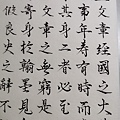 文章經國之大
事年壽有時而
其身二者必至
文章之無窮是
寄身於翰墨見
假良史之辭不